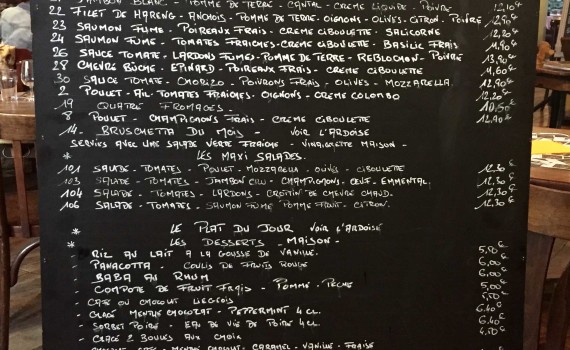 21 JAMBON BLANC - POMME DE TERRE - CANTAL - CREME LIQUIDE - POIVRE 12,10€
22 FILET DE HARENG - ANCHOIS - POMME DE TERRE - OIGNONS - OLIVES - CITRON - POIVRE 12,90€
23 SAUMON FUME - POIREAUX FRAIS - CREME CIBOULETTE - SALICORNE
24 SAUMON FUME - TOMATES FRAICHES - CREME CIBOULETTE - BASILIC FRAIS
26 SAUCE TOMATE - LARDONS FUMES - POMME DE TERRE - REBLOCHON - POIVRE
28 CHEVRE BUCHE - EPINARD - POIREAUX FRAIS - CREME CIBOULETTE 11,60€
30 SAUCE TOMATE - CHORIZO - POIVRONS FRAIS - OLIVES - MOZZARELLA 12,90€
2 POULET - AIL - TOMATES FRAICHES - OIGNONS - CREME COLOMBO 12,20€
19 QUATRE FROMAGES - 10,50€
8 POULET - CHAMPIGNONS FRAIS - CREME CIBOULETTE 12,90€
14 - BRUSCHETTA DU MOIS - VOIR L'ARDOISE
SERVIES AVEC UNE SALADE VERTE FRAICHE - VINAIGRETTE MAISON -
* LES MAXI SALADES -
101 SALADE - TOMATES - POULET - MOZZARELLA - OLIVES - CIBOULETTE 12,30€
103 SALADE - TOMATES - JAMBON CRU - CHAMPIGNONS - OEUF - EMMENTAL 12,30€
104 SALADE - TOMATES - LARDONS - CROTTIN DE CHEVRE CHAUD - 12,30€
106 SALADE - TOMATES - SAUMON FUME POMME FRUIT - CITRON - 12,30€
* LE PLAT DU JOUR VOIR L'ARDOISE
* LES DESSERTS - MAISON -
- RIZ AU LAIT A LA GOUSSE DE VANILLE - 5,50€
- PANACOTTA - COULIS DE FRUITS ROUGE 6,00€
- BABA AU RHUM 6,00€
- COMPOTE DE FRUIT FRAIS - POMME - PECHE 5,00€
- CAFE OU CHOCOLAT LIEGEOIS
- GLACE MENTHE CHOCOLAT - PEPPERMINT 4 CL. 6,40€
- SORBET POIRE - EAU DE VIE DE POIRE 4 CL. 6,40€
- GLACE 2 BOULES AUX CHOIX
MENTHE CHOCOLAT - CARAMEL - VANILLE - FRAISE